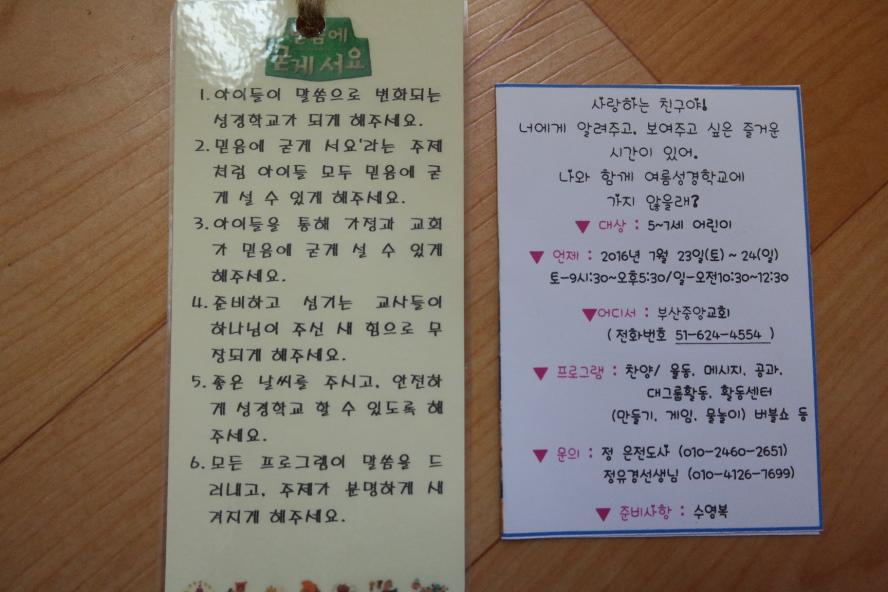 굳게 서요
1. 아이들이 말씀으로 변화되는
성경학교가 되게 해주세요.
2. 믿음에 굳게 서요'라는 주제
처럼 아이들 모두 믿음에 굳
게 설 수 있게 해주세요.
3. 아이들을 통해 가정과 교회
가 믿음에 굳게 설 수 있게
해주세요.
4. 준비하고 섬기는 교사들이
하나님이 주신 새 힘으로 무
장되게 해주세요.
5. 좋은 날씨를 주시고, 안전하
게 성경학교 할 수 있도록 해
주세요.
6. 모든 프로그램이 말씀을 드
러내고, 주제가 분명하게 새
겨지게 해주세요.
사랑하는 친구야!
너에게 알려주고, 보여주고 싶은 즐거운
시간이 있어.
나와 함께 여름성경학교에
가지 않을래?
▼ 대상 : 5~7세 어린이
▼ 언제 : 2016년 7월 23일(토) ~ 24(일)
토-9시:30~오후5:30/일-오전10:30~12:30
▼어디서 : 부산중앙교회
( 전화번호 51-624-4554 )
▼ 프로그램 : 찬양/ 율동, 메시지, 공과,
대그룹활동, 활동센터
(만들기, 게임, 물놀이) 버블쇼 등
▼ 문의 : 정 은전도사 (010-2460-2651)
정유경선생님 (010-4126-7699)
▼ 준비사항 : 수영복